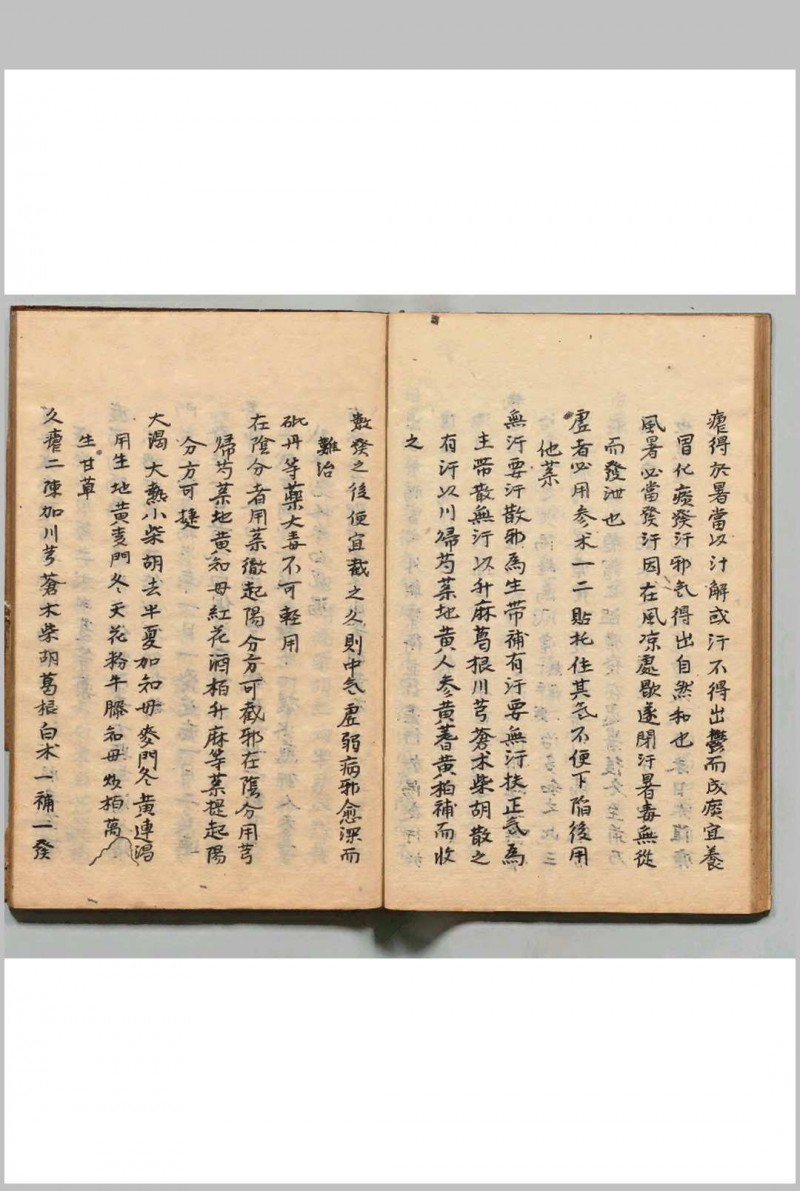 瘧得於暑當以汁解或汗不得出鬱而成痰宜養
胃化痰發汗邪氣得出自然和也
風暑必當發汗因在風凉處歇遂閉汗暑毒無從
而發泄也
虛者必用参术一二貼托住其氣不便下陷後用
他藥
無汗要汗散邪為生带補有汗要無汗扶正氣為
主带散無汗以升麻葛根川芎蒼术柴胡散之
有汗以川歸芍藥地黄人参黄蓍黄柏補而收
之
數發之後便宜截之久則中氣虛弱病邪愈深而
難治
砒丹等藥大毒不可輕用
在陰分者用藥徹起陽分方可截邪在陰分用芎
歸芍藥地黄知母紅花酒栢升麻等藥提起陽
分方可捷
大渴大熱小柴胡去半夏加知母麥門冬黄連渴
用生地黄麦門冬天花粉牛膝知母炒栢萬
生甘草
久瘧二陳加川芎蒼木柴胡葛根白术一補一發